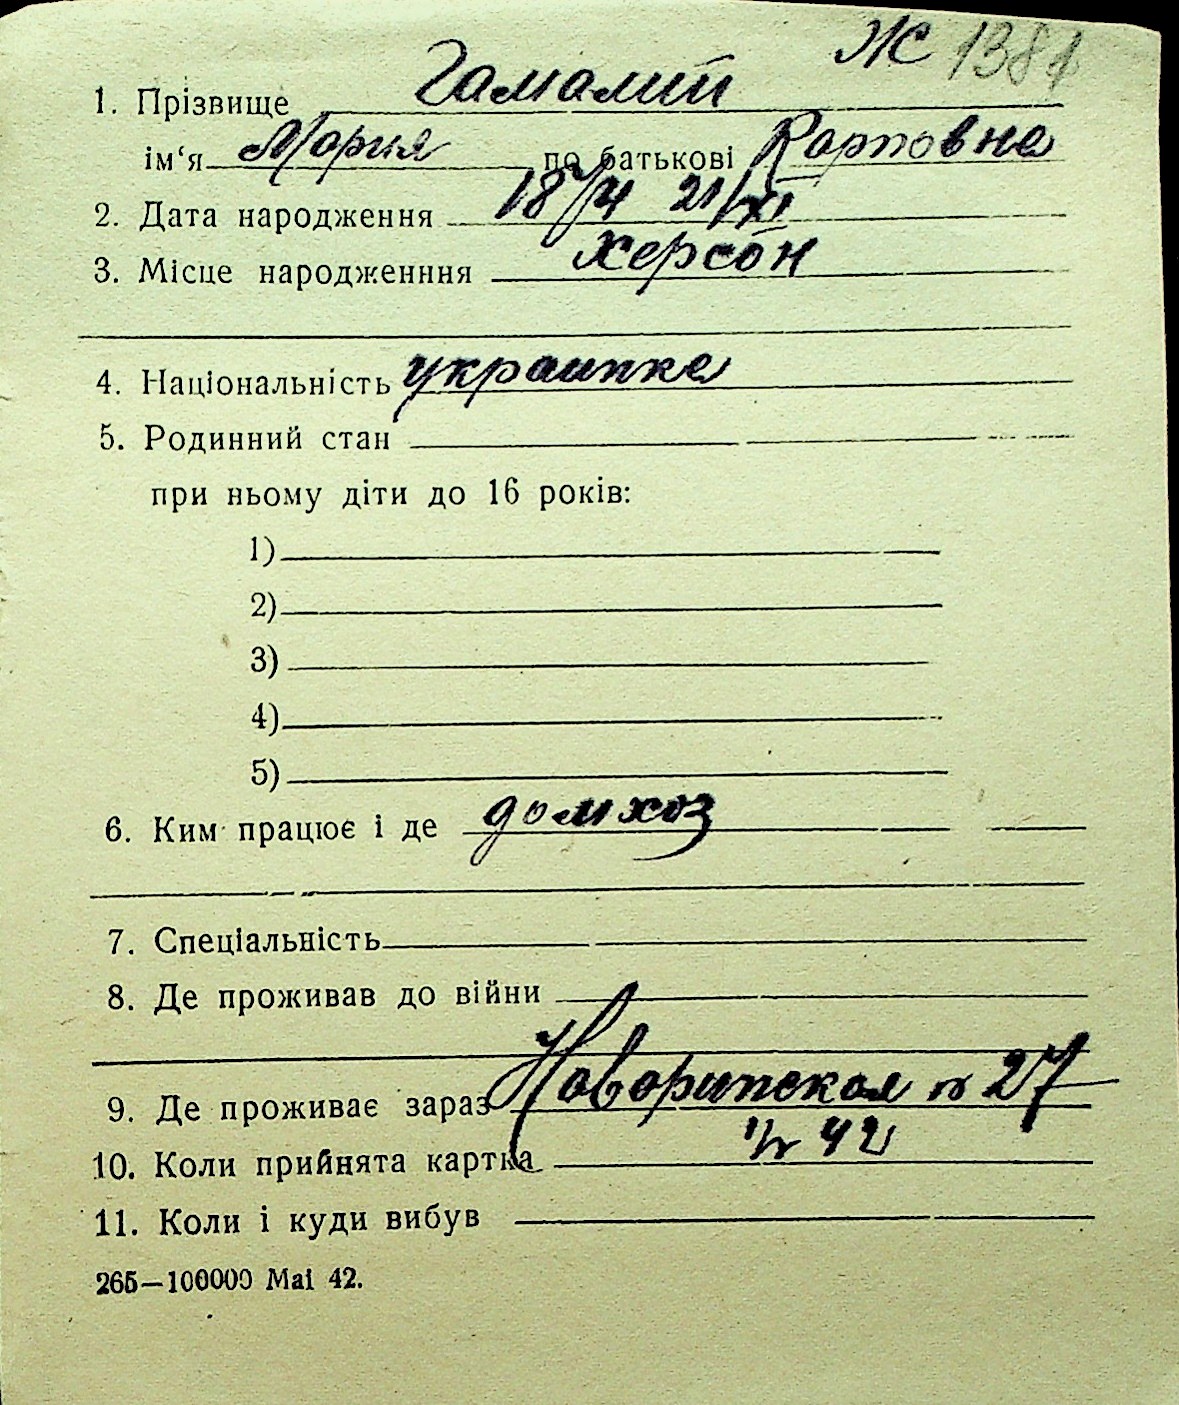 Ж 1381
1. Прізвище Гамалий
ім‘я Мария по батькові Карповна
2. Дата народження 1874 21/XI
3. Місце народженння Херсон
4. Національність украинка
5. Родинний стан
при ньому діти до 16 років:
1)
2)
3)
4)
5)
6. Ким працює і де домхоз
7. Спеціальність
8. Де проживав до війни
9. Де проживає зараз 27
10. Коли прийнята картка 42
11. Коли і куди вибув
265—100000 Mai 42.